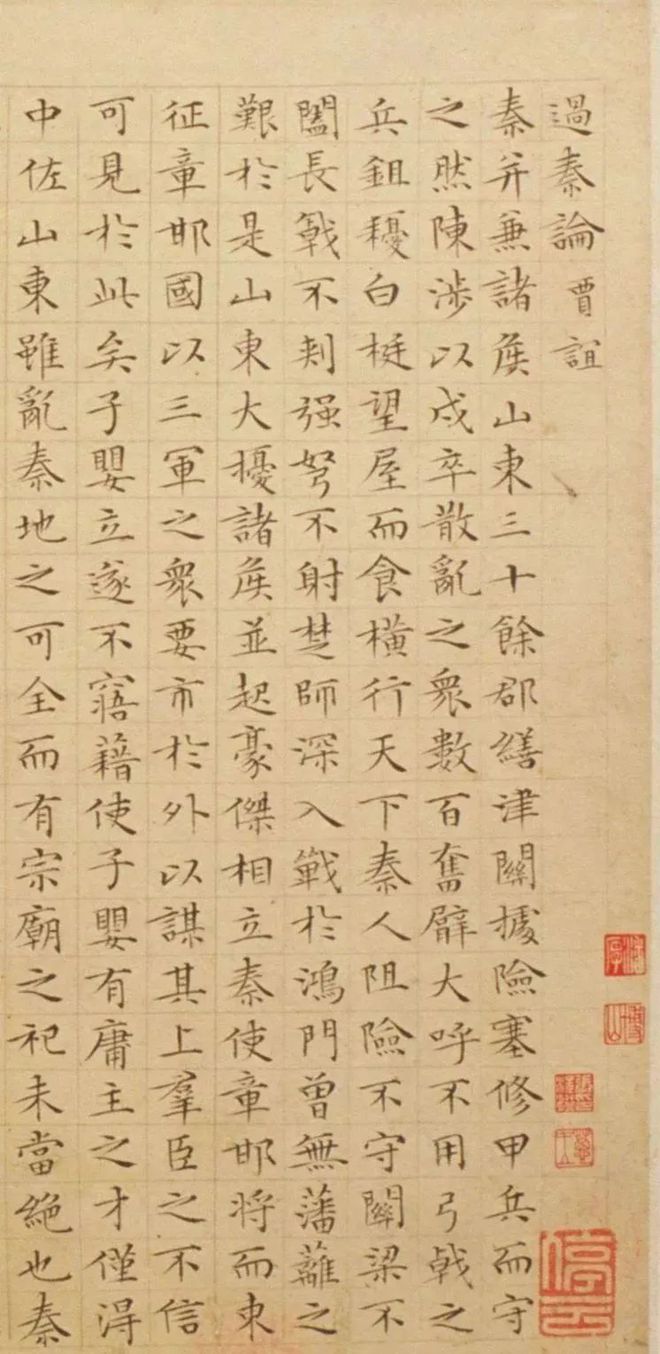 過秦論 賈誼
秦并兼諸侯山東三十餘郡繕津關據險塞修甲兵而守
之然陳涉以戍卒散亂之衆數百奮臂大呼不用弓戟之
兵鉏耰白梃望屋而食橫行天下秦人阻險不守關梁不
闔長戟不刺强弩不射楚師深入戰於鴻門曾無藩籬之
艱於是山東大擾諸侯並起豪傑相立秦使章邯將而東
征章邯國以三軍之衆要市於外以謀其上羣臣之不信
可見於此矣子嬰立遂不寤藉使子嬰有庸主之才僅得
中佐山東雖亂秦地之可全而有宗廟之祀未當絕也秦
停雲